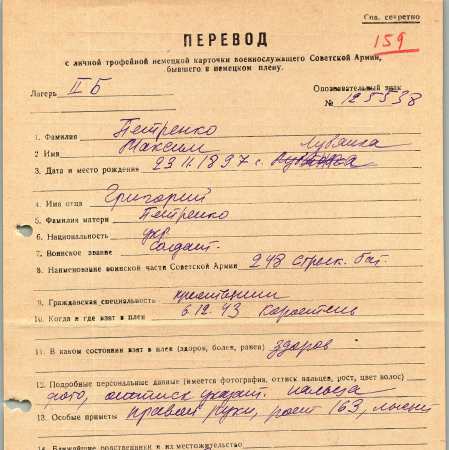 Сов. секретно
159
ПЕРЕВОД
с личной трофейной немецкой карточки военнослужащего Советской Армии,
бывшего в немецком плену.
Лагерь II Б
Опознавательный знак
№ 125538
1. Фамилия Петренко
2 Имя Максим
3. Дата и место рождения 23.11.1897 г. Лубянка
4. Имя отца Григорий
5. Фамилия матери Петренко
6. Национальность укр.
7. Воинское звание Солдат.
8. Наименование воинской части Советской Армии 248 стрелк. бат.
9. Гражданская специальность крестьянин
10. Когда и где взят в плен 6.12.43 Коростень
11. В каком состоянии взят в плен (здоров, болен, ранен) здоров
12. Подробные персональные данные (имеется фотография, оттиск пальцев, рост, цвет волос)
фото, оттиск указат. пальца
13. Особые приметы правой руки, рост 163, лысый
14. Ближайшие родственники и их местожительство